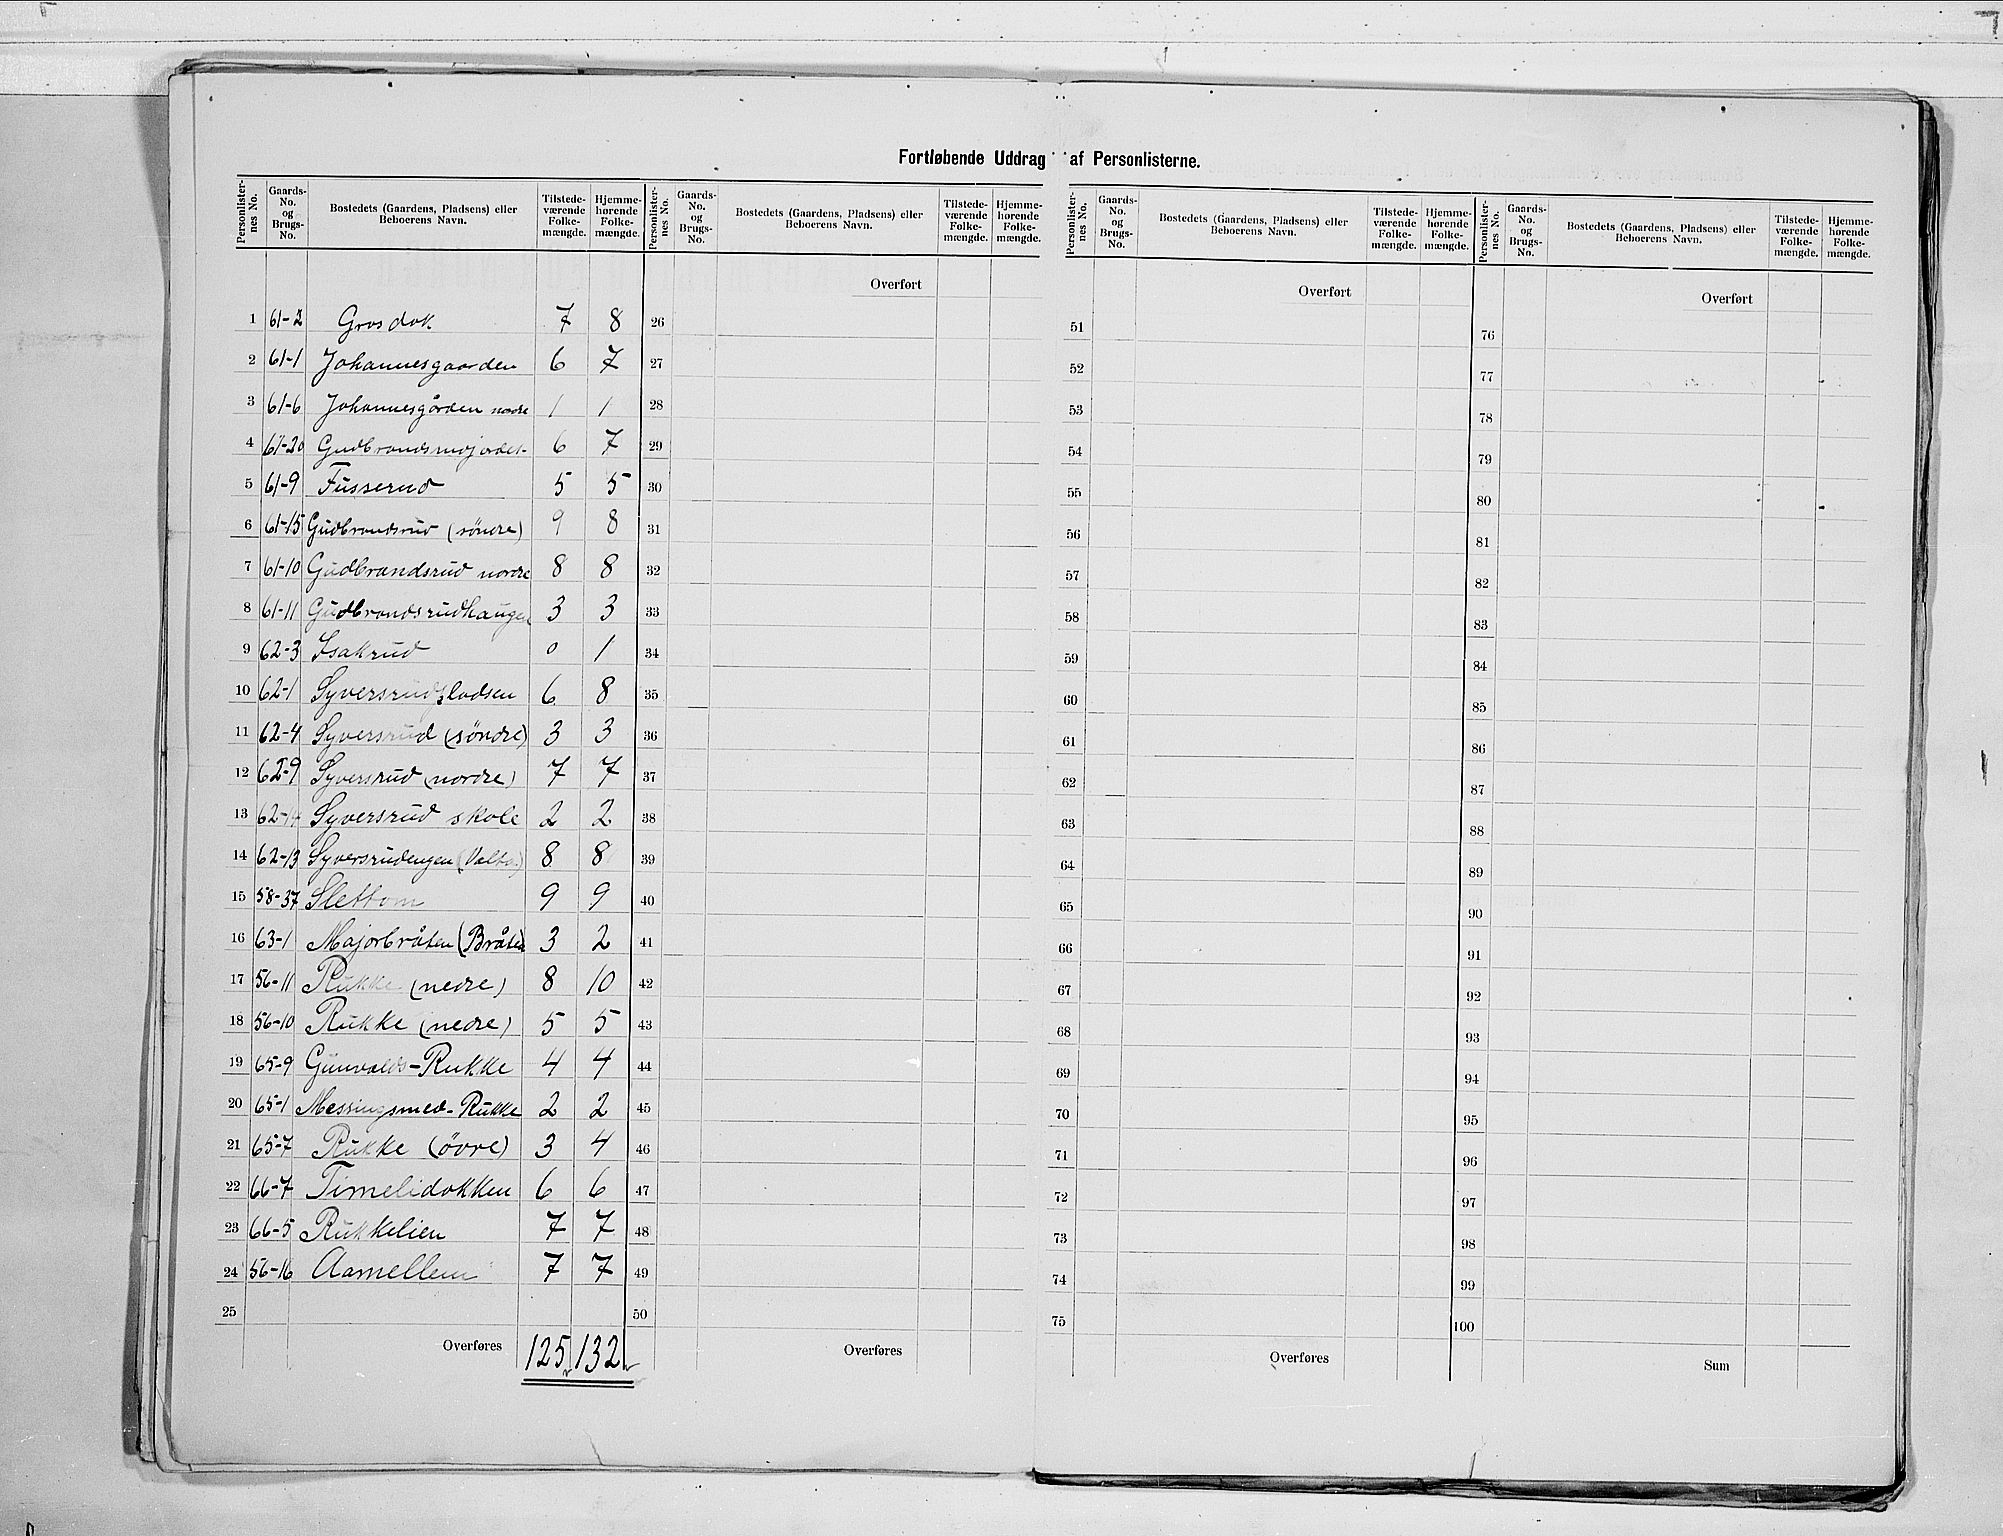 Fortløbende Uddrag af Personlisterne.
Personlisternes No. | Gaards-No. og Brugs-No. | Bostedets (Gaardens, Pladsens) eller Beboerens Navn. | Tilstedeværende Folkemængde. | Hjemmehørende Folkemængde.
Personlisternes No. | Gaards-No. og Brugs-No. | Bostedets (Gaardens, Pladsens) eller Beboerens Navn. | Tilstedeværende Folkemængde. | Hjemmehørende Folkemængde.
Personlisternes No. | Gaards-No. og Brugs-No. | Bostedets (Gaardens, Pladsens) eller Beboerens Navn. | Tilstedeværende Folkemængde. | Hjemmehørende Folkemængde.
Personlisternes No. | Gaards-No. og Brugs-No. | Bostedets (Gaardens, Pladsens) eller Beboerens Navn. | Tilstedeværende Folkemængde. | Hjemmehørende Folkemængde.
Overført Overført Overført
1 61-2 Grosdok 7 8 26 51 76
2 61-1 Johannesgaarden 6 7 27 52 77
3 61-6 Johannesgården nordre 1 1 28 53 78
4 61-20 Gudbrandsmojordet 6 7 29 54 79
5 61-9 Fusserud 5 5 30 55 80
6 61-15 Gudbrandsrud (söndre) 9 8 31 56 81
7 61-10 Gudbrandsrud nordre 8 8 32 57 82
8 61-11 Gudbrandsrudhaugen 3 3 33 58 83
9 62-3 Isakrud 0 1 34 59 84
10 62-1 Syversrudsladsen 6 8 35 60 85
11 62-4 Syversrud (söndre) 3 3 36 61 86
12 62-9 Syversrud (nordre) 7 7 37 62 87
13 62-14 Syversrud skole 2 2 38 63 88
14 62-13 Syversrudengen 8 8 39 64 89
15 58-37 Slettom 9 9 40 65 90
16 63-1 Majorbråten (Bråten 3 2 41 66 91
17 56-11 Rukke (nedre) 8 10 42 67 92
18 56-10 Rukke (nedre) 5 5 43 68 93
19 65-9 Gunvalds-Rukke 4 4 44 69 94
20 65-1 Messingsmed-Rukke 2 2 45 70 95
21 65-7 Rukke (övre) 3 4 46 71 96
22 66-7 Timelidokken 6 6 47 72 97
23 66-5 Rukkelien 7 7 48 73 98
24 56-16 Aamellem 7 7 49 74 99
25 50 75 100
Overføres 125 132 Overføres Overføres Sum